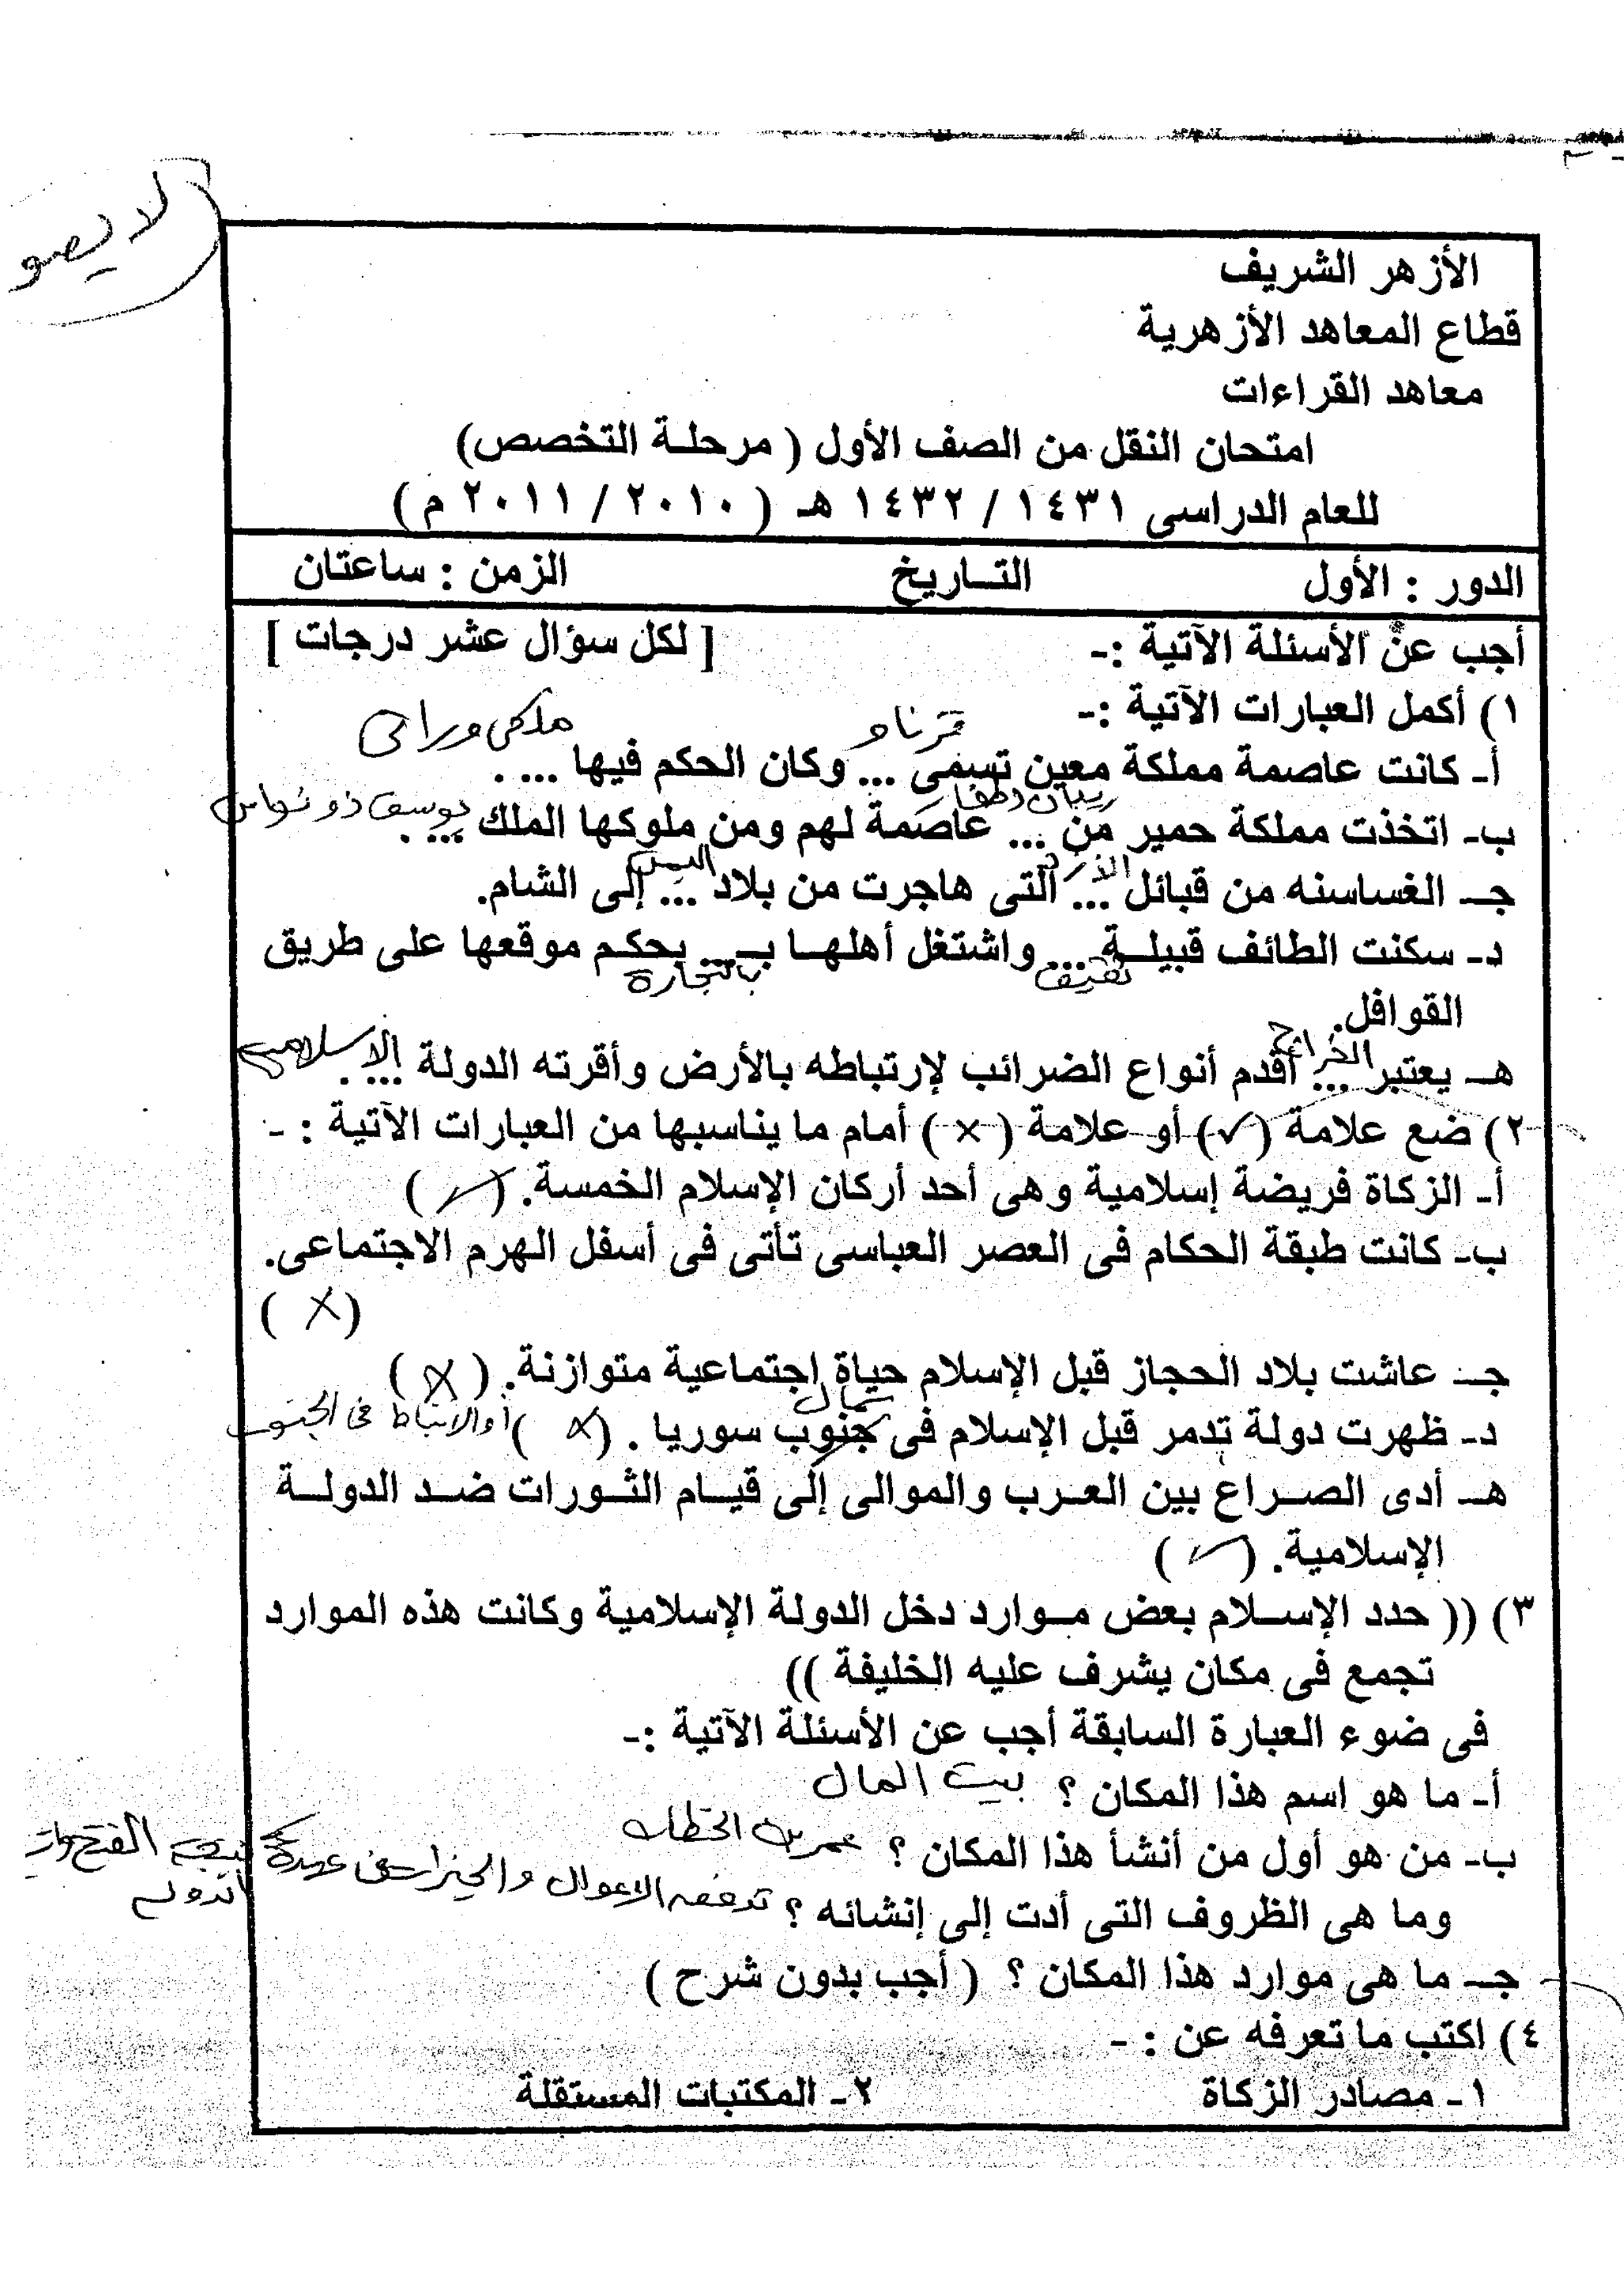 لا يصو
الأزهر الشريف
قطاع المعاهد الأزهرية
معاهد القراءات
امتحان النقل من الصف الأول ( مرحلـة التخصص)
للعام الدراسى ١٤٣١ / ١٤٣٢ هـ ( ٢٠١٠ / ٢٠١١ م )
الدور : الأول التـــاريخ الزمن : ساعتان
أجب عن الأسئلة الآتية :- [ لكل سؤال عشر درجات ]
١) أكمل العبارات الآتية :-
قرناو ملكى وراثى
أ- كانت عاصمة مملكة معين تسمى ... وكان الحكم فيها ... .
ريدان يوسف ذو نواس
ب- اتخذت مملكة حمير من ... عاصمة لهم ومن ملوكها الملك ... .
الأزد اليمن
جـ- الغساسنه من قبائل ... التى هاجرت من بلاد ... إلى الشام.
د- سكنت الطائف قبيلـة ... واشتغل أهلهـا بـ... بحكـم موقعها على طريق
ثقيف بالتجارة
القوافل.
الخراج الاسلامية
هـ- يعتبر ... أقدم أنواع الضرائب لإرتباطه بالأرض وأقرته الدولة ... .
٢) ضع علامة (✓) أو علامة (×) أمام ما يناسبها من العبارات الآتية : -
أ- الزكاة فريضة إسلامية وهى أحد أركان الإسلام الخمسة. (✓)
ب- كانت طبقة الحكام فى العصر العباسى تأتى فى أسفل الهرم الاجتماعى.
(×)
جـ- عاشت بلاد الحجاز قبل الإسلام حياة إجتماعية متوازنة. (×)
شمال
د- ظهرت دولة تدمر قبل الإسلام فى جنوب سوريا . (×) أو الانباط فى الجنوب
هـ- أدى الصـراع بين العـرب والموالى إلى قيـام الثـورات ضـد الدولـة
الإسلامية. (✓)
٣) (( حدد الإسـلام بعض مـوارد دخل الدولة الإسلامية وكانت هذه الموارد
تجمع فى مكان يشرف عليه الخليفة ))
فى ضوء العبارة السابقة أجب عن الأسئلة الآتية :-
أ- ما هو اسم هذا المكان ؟ بيت المال
ب- من هو أول من أنشأ هذا المكان ؟ عمر بن الخطاب
وما هى الظروف التى أدت إلى إنشائه ؟ تدفقه الاموال نتيجة الفتح
الدولة
جـ- ما هى موارد هذا المكان ؟ ( أجب بدون شرح )
٤) اكتب ما تعرفه عن : -
١- مصادر الزكاة ٢- المكتبات المستقلة